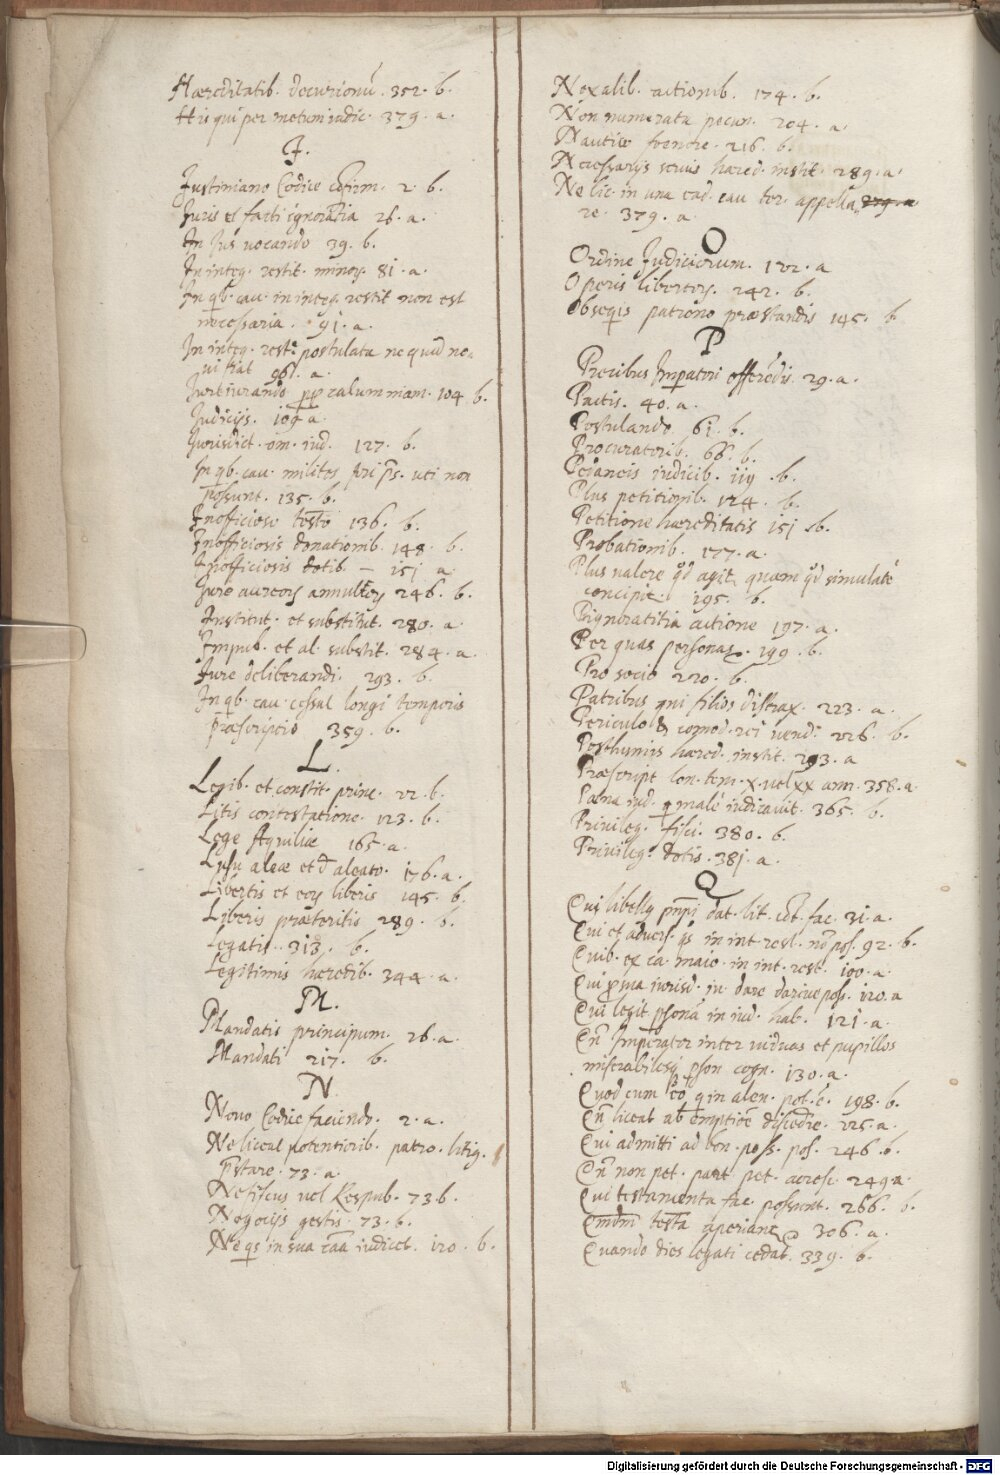 Hæreditatib. decurionū. 352. b.
His qui per metum iudic. 379. a.
J.
Justiniano Codice cōfirm. 2. b.
Juris et facti ignorātia 26. a.
In Jus uocando 39. b.
In integ. restit. minor. 81. a.
In qb. cau. in integ. restit non est
necessaria. 91. a.
In integ. rest. postulata ne quid no-
ui fiat 96. a.
Jureiurando ꝓp calumniam. 104. b.
Judicijs. 109 a.
Jurisdict. om. iud. 127. b.
In qb. cau. milites fori p̄s. uti non
possunt. 135. b.
Inofficioso testō 136. b.
Inofficiosis donationib. 148. b.
Inofficiosis dotib — 151 a.
Jure aureor annullor 246. b.
Institut. et substitut. 280. a.
Impub. et al. substit. 284. a.
Jure deliberandi. 293. b.
In qb. cau. cessat longi temporis
præscriptio 359. b.
L.
Legib. et constit. princ. 22. b.
Litis contestatione. 123. b.
Lege Aquiliæ 165. a.
Lusu aleæ et d̄ aleato. 176. a.
Libertis et eor liberis 145. b.
Liberis præteritis 289. b.
Legatis. 313. b.
Legitimis hæredib. 344. a.
M.
Mandatis principum. 26. a.
Mandati 217. b.
N.
Nouo Codice faciendo. 2. a.
Ne liceat potentiorib. patro. litig.
p̄stare. 73. a.
Ne fiscus uel Respub. 73 b.
Negocijs gestis. 73. b.
Ne qs in sua cāa iudicet. 120. b.
Noxalib. actionib. 174. b.
Non numerata pecun. 204. a.
Nautico foenore. 216. b.
Necessarijs seruis hæred. instit. 289. a.
Ne lic. in una ead. cau ter. appella 379. a
re. 379. a.
O
Ordine Judiciorum. 122. a
Operis libertor. 242. b.
Obseqis patrono præstandis 145. b
P
Precibus Imp̄atori offerēdis. 29. a.
Pactis. 40. a.
Postulando 61. b.
Procuratorib. 66. b.
Pedaneis iudicib. 119. b.
Plus petitionib. 124. b.
Petitione hæreditatis 151. b.
Probationib. 177. a.
Plus ualere qd agit quam qd simulatē
concipit. 195. b.
Pignoratitia actione 197. a.
Per quas personas. 199. b.
Pro socio 220. b.
Patribus qui filios distrax. 223. a.
Periculo & comod. rei uend. 226. b.
Posthumis hæred. instit. 293. a
Præscript lon. tem. x. uel xx ann. 358. a.
Pœna iud. q male iudicauit. 365. b.
Priuileg. fisci. 380. b.
Priuileg. dotis. 381. a.
Q
Qui libelly pn̄pi dat. lit. cōt. fac. 31. a.
Qui et aduers. qs in int rest. nō pos. 92. b.
Quib. ex ca. maio. in int. rest. 100. a.
Qui p sua iurisd. iu dare dariue poss. 120. a
Qui legit. psona in iud. hab. 121. a.
Qn̄ Imperator inter uiduas et pupillos
miserabilesq pson cogn. 130. a.
Quod cum eo q in alien. pot. e. 198. b.
Qn̄ liceat ab emptiōe discedere. 225. a.
Qui admitti ad bon. poss. pos. 246. b.
Qn̄ non pet. part pet. acresc. 249. a.
Qui testamenta fac. possunt. 266. b.
Quēmdm testa aperiant 306. a.
Quando dies legati cedat. 339. b.
Digitalisierung gefördert durch die Deutsche Forschungsgemeinschaft - DFG